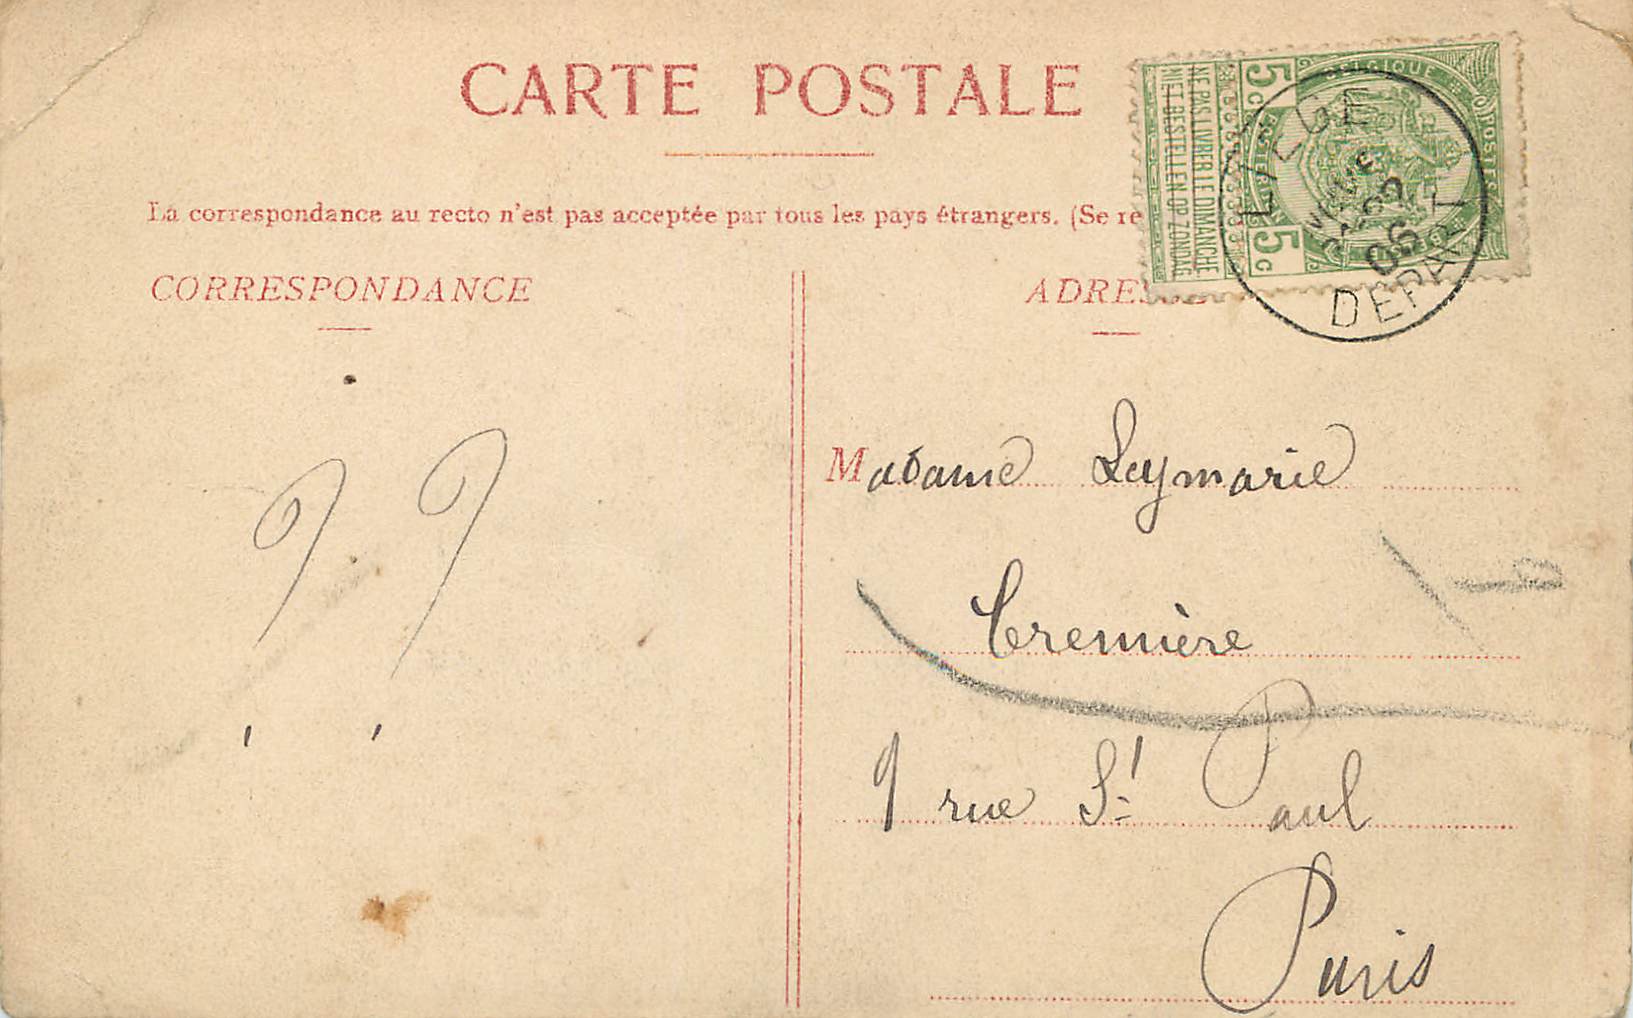 CARTE POSTALE
La correspondance au recto n'est pas acceptée par tous les pays étrangers. (Se re
CORRESPONDANCE
ADRESSE
? ?
5c 5c
BELGIQUE
POSTES
POSTERIJEN
NE PAS LIVRER LE DIMANCHE
NIET BESTELLEN OP ZONDAG
LIEGE
06
DEPART
Madame Leymarie
Cremière
9 rue St Paul
Paris